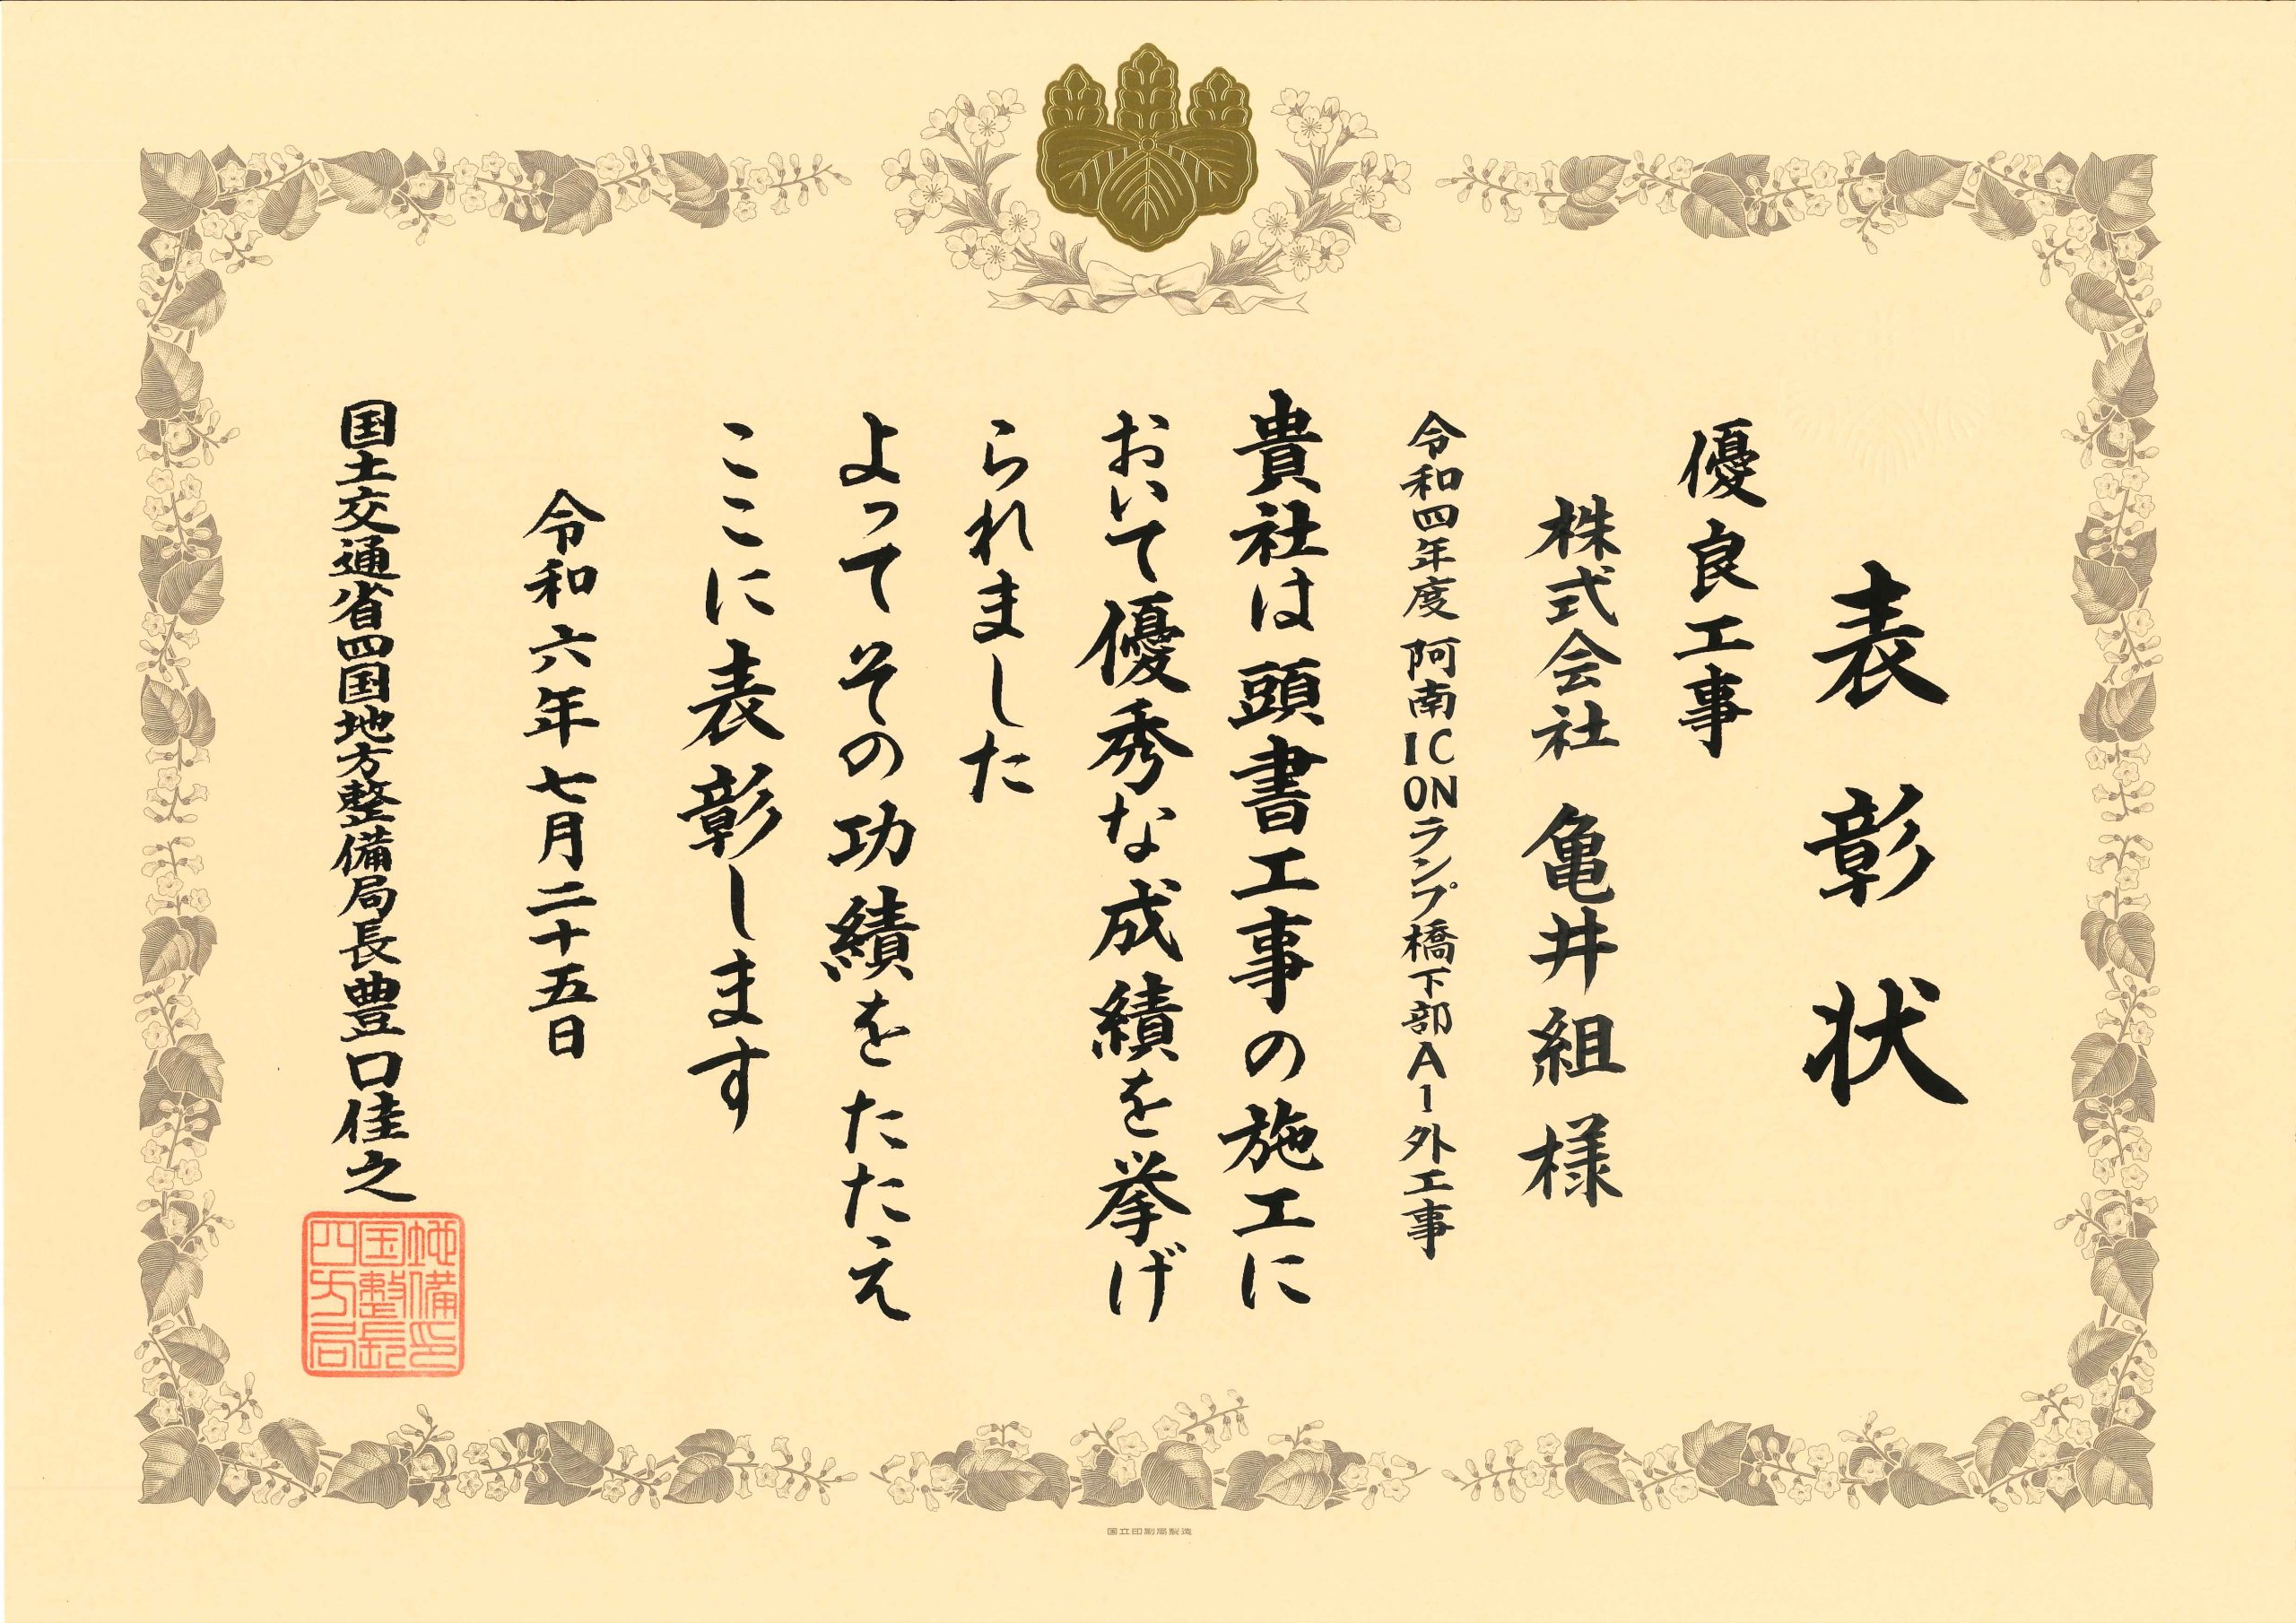 表彰状
優良工事
株式会社 亀井組 様
令和四年度 阿南IC ONランプ橋下部A1外工事
貴社は頭書工事の施工に
おいて優秀な成績を挙げ
られました
よってその功績をたたえ
ここに表彰します
令和六年七月二十五日
国土交通省四国地方整備局長 豊口佳之
四国地方整備局長印
国立印刷局製造